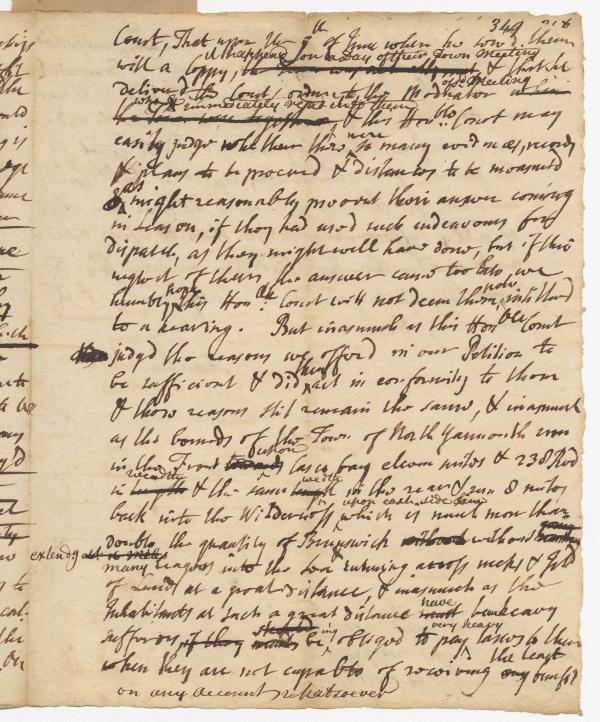 349
Court, That upon the 9th of June when he serv'd them
with a Coppy, it happened on a day of their Town Meeting & that he
deliver'd the Court order to the Moderator of sd Meeting
who immediately read it to them & this Honble Court may
easily judge whether there were so many evidences, records
& plans to be procured & distances to be measured
as might reasonably prevent their answer coming
in Season, if they had used such endeavours for
dispatch, as they might well have done, but if thro
neglect of theirs, the answer came too late, we
humbly hope this Honble Court will not deem them now intitled
to a hearing. But inasmuch as this Honble Court
judgd the reasons we offerd in our Petition to
be sufficient & did then act in conformity to them
& those reasons still remain the same, & inasmuch
as the bounds of the Town of North Yarmouth run
in the Front upon Casco bay eleven miles & 238 Rod
in wedth & the same wedth in the rear & run 8 miles
back into the Wilderness upon each side line which is much more than
double the quantity of Brunswick without
extendg many leagues into the Sea & running across necks &
of Land at a great distance, & inasmuch as the
Inhabitants at such a great distance have been heavy
sufferers, being obliged to pay very heavy taxes to them
when they are not capable of receiving the least benefit
on any account whatsoever